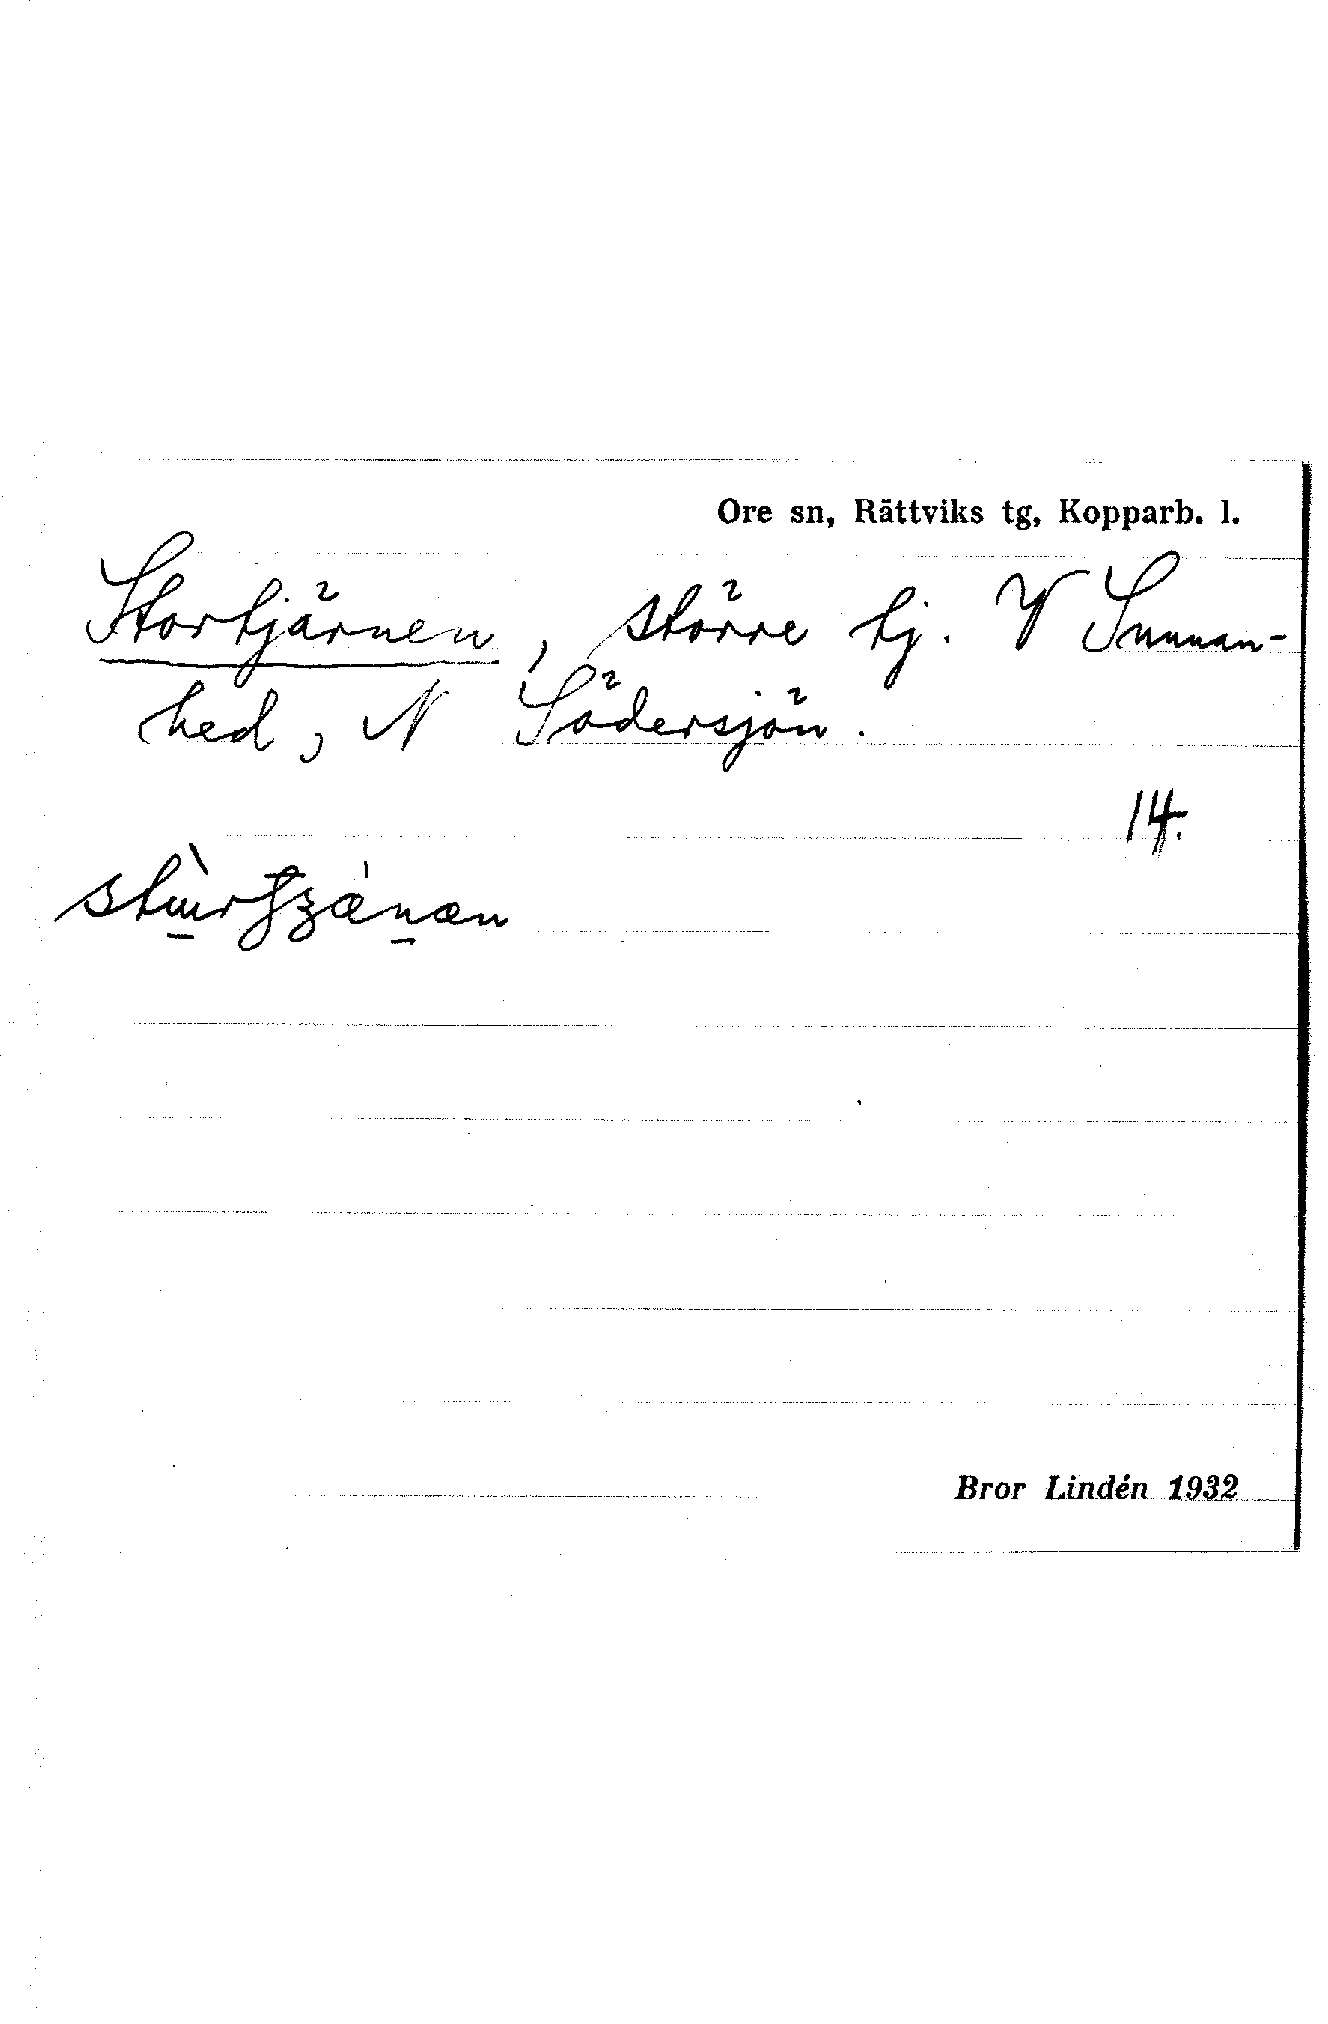 Ore sn, Rättviks tg, Kopparb. l.
Stortjärnen, större tj. V Sunnan-
hed, N Södersjön.
14.
Bror Lindén 1932